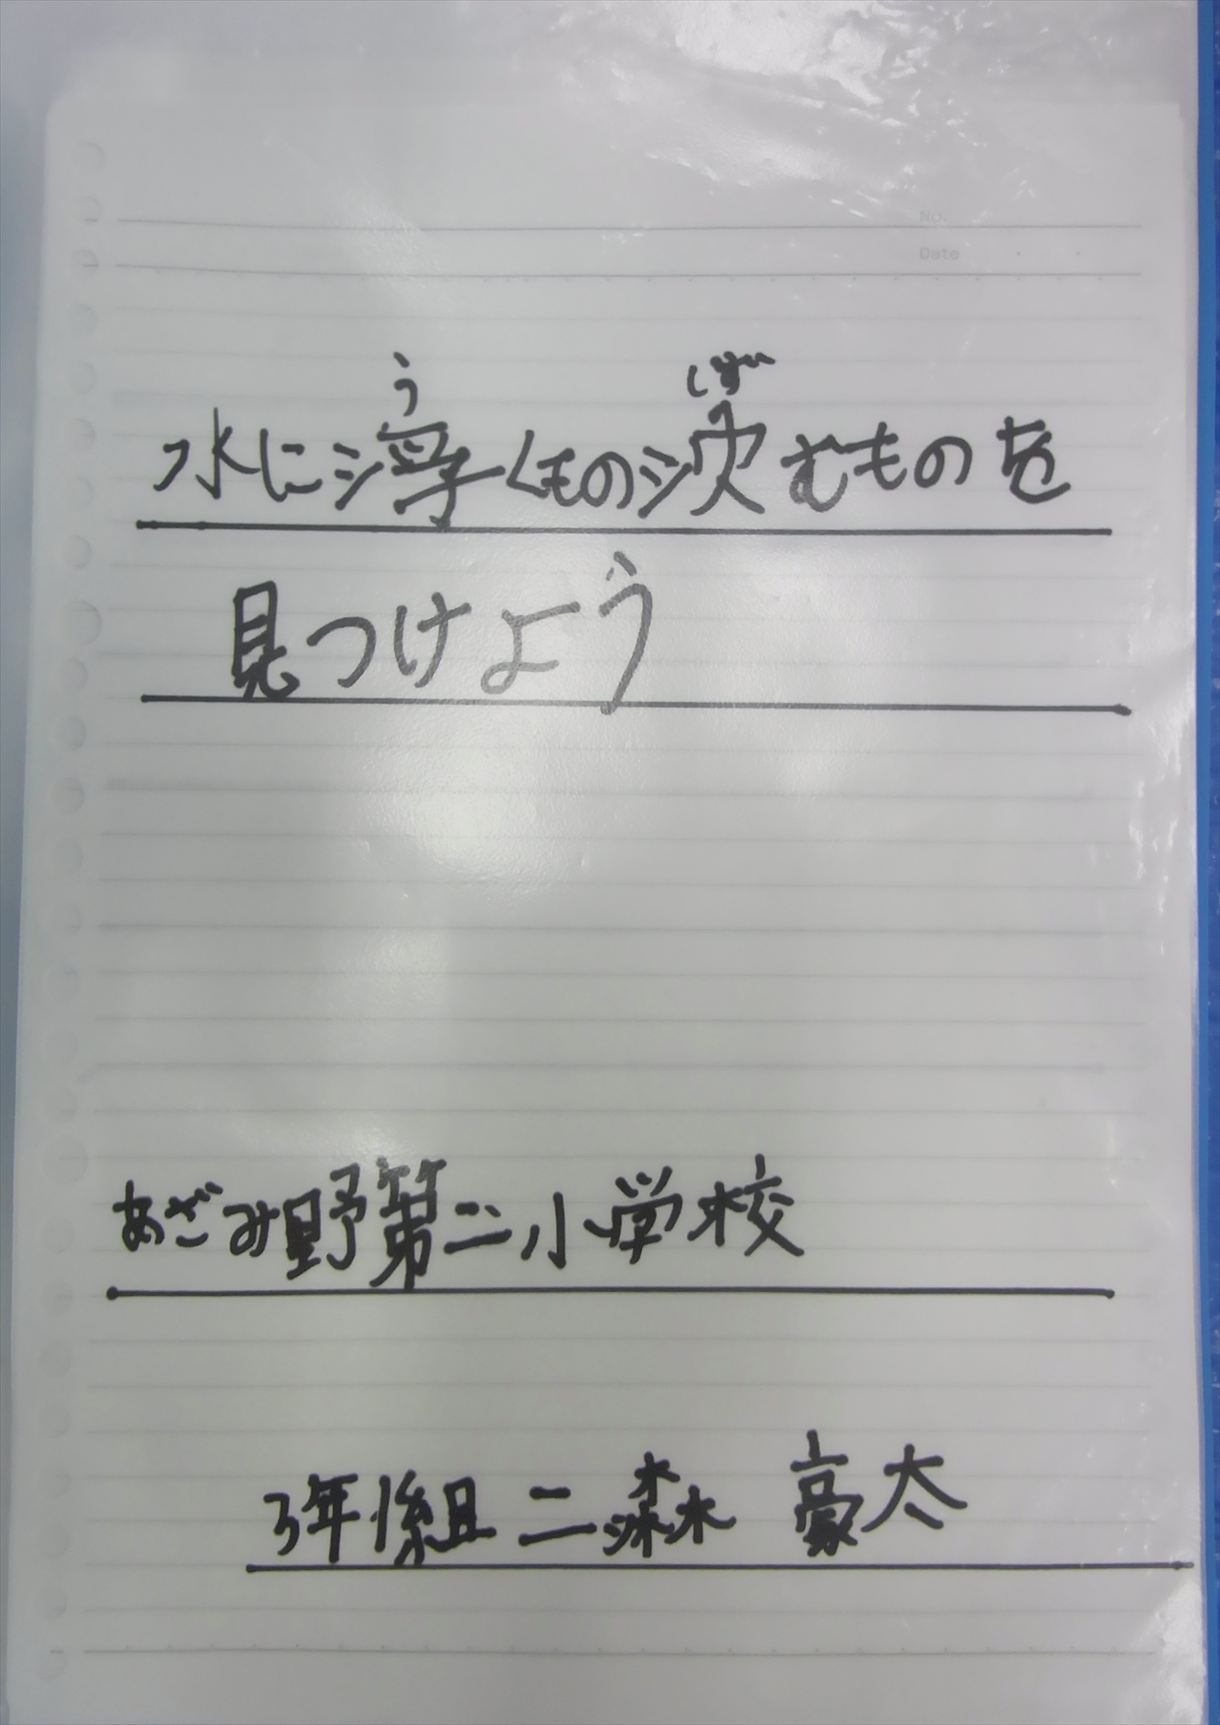 No.
Date
水に浮くもの沈むものを
見つけよう
あざみ野第二小学校
3年1組 二森 豪太